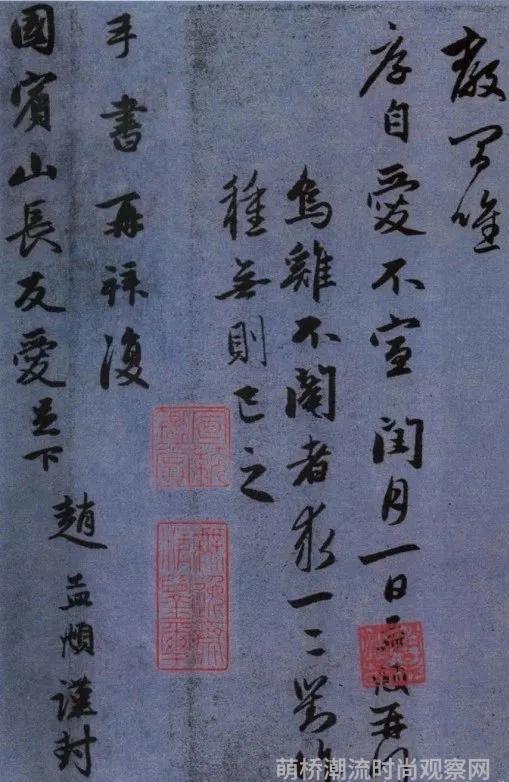 唯
自愛不宣 閏月一日孟頫再拜
烏雞不閹者求一二對作
種無則已之
手書再拜復
國賓山長友愛足下
趙孟頫謹封
萌桥潮流时尚观察网